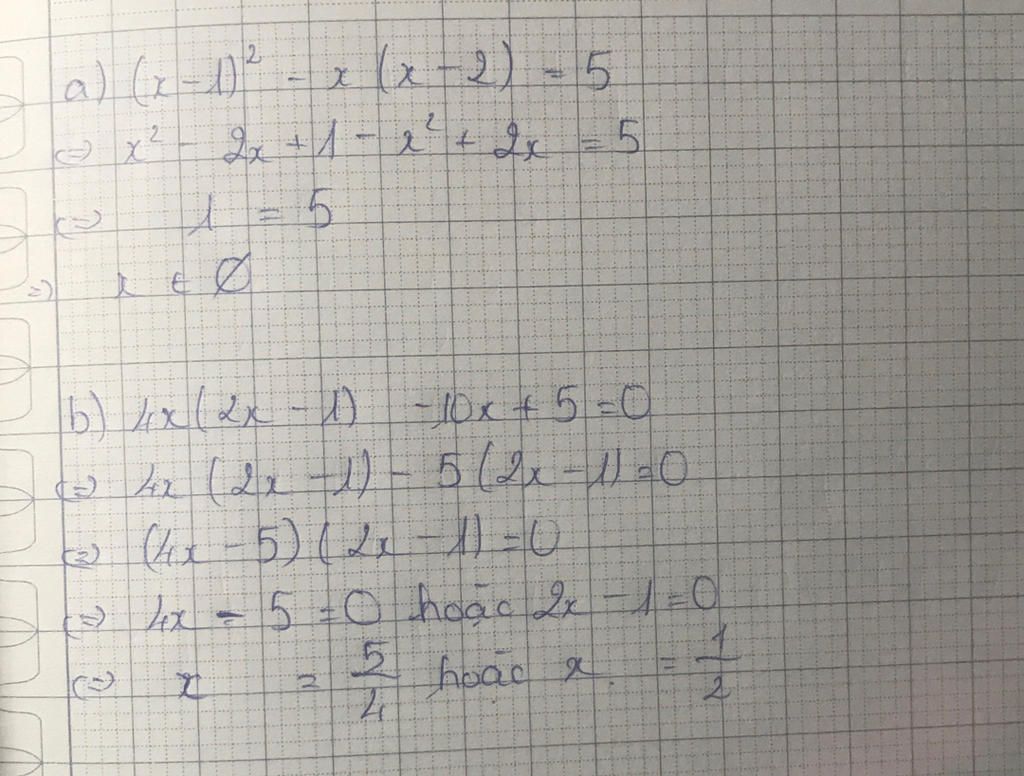 a) (x-1)² - x (x-2) = 5
<=> x² - 2x + 1 - x² + 2x = 5
<=> 1 = 5
=> x ∈ ∅
b) 4x(2x - 1) - 10x + 5 = 0
<=> 4x (2x - 1) - 5 (2x - 1) = 0
<=> (4x - 5) (2x - 1) = 0
<=> 4x - 5 = 0 hoặc 2x - 1 = 0
<=> x = 5/4 hoặc x = 1/2